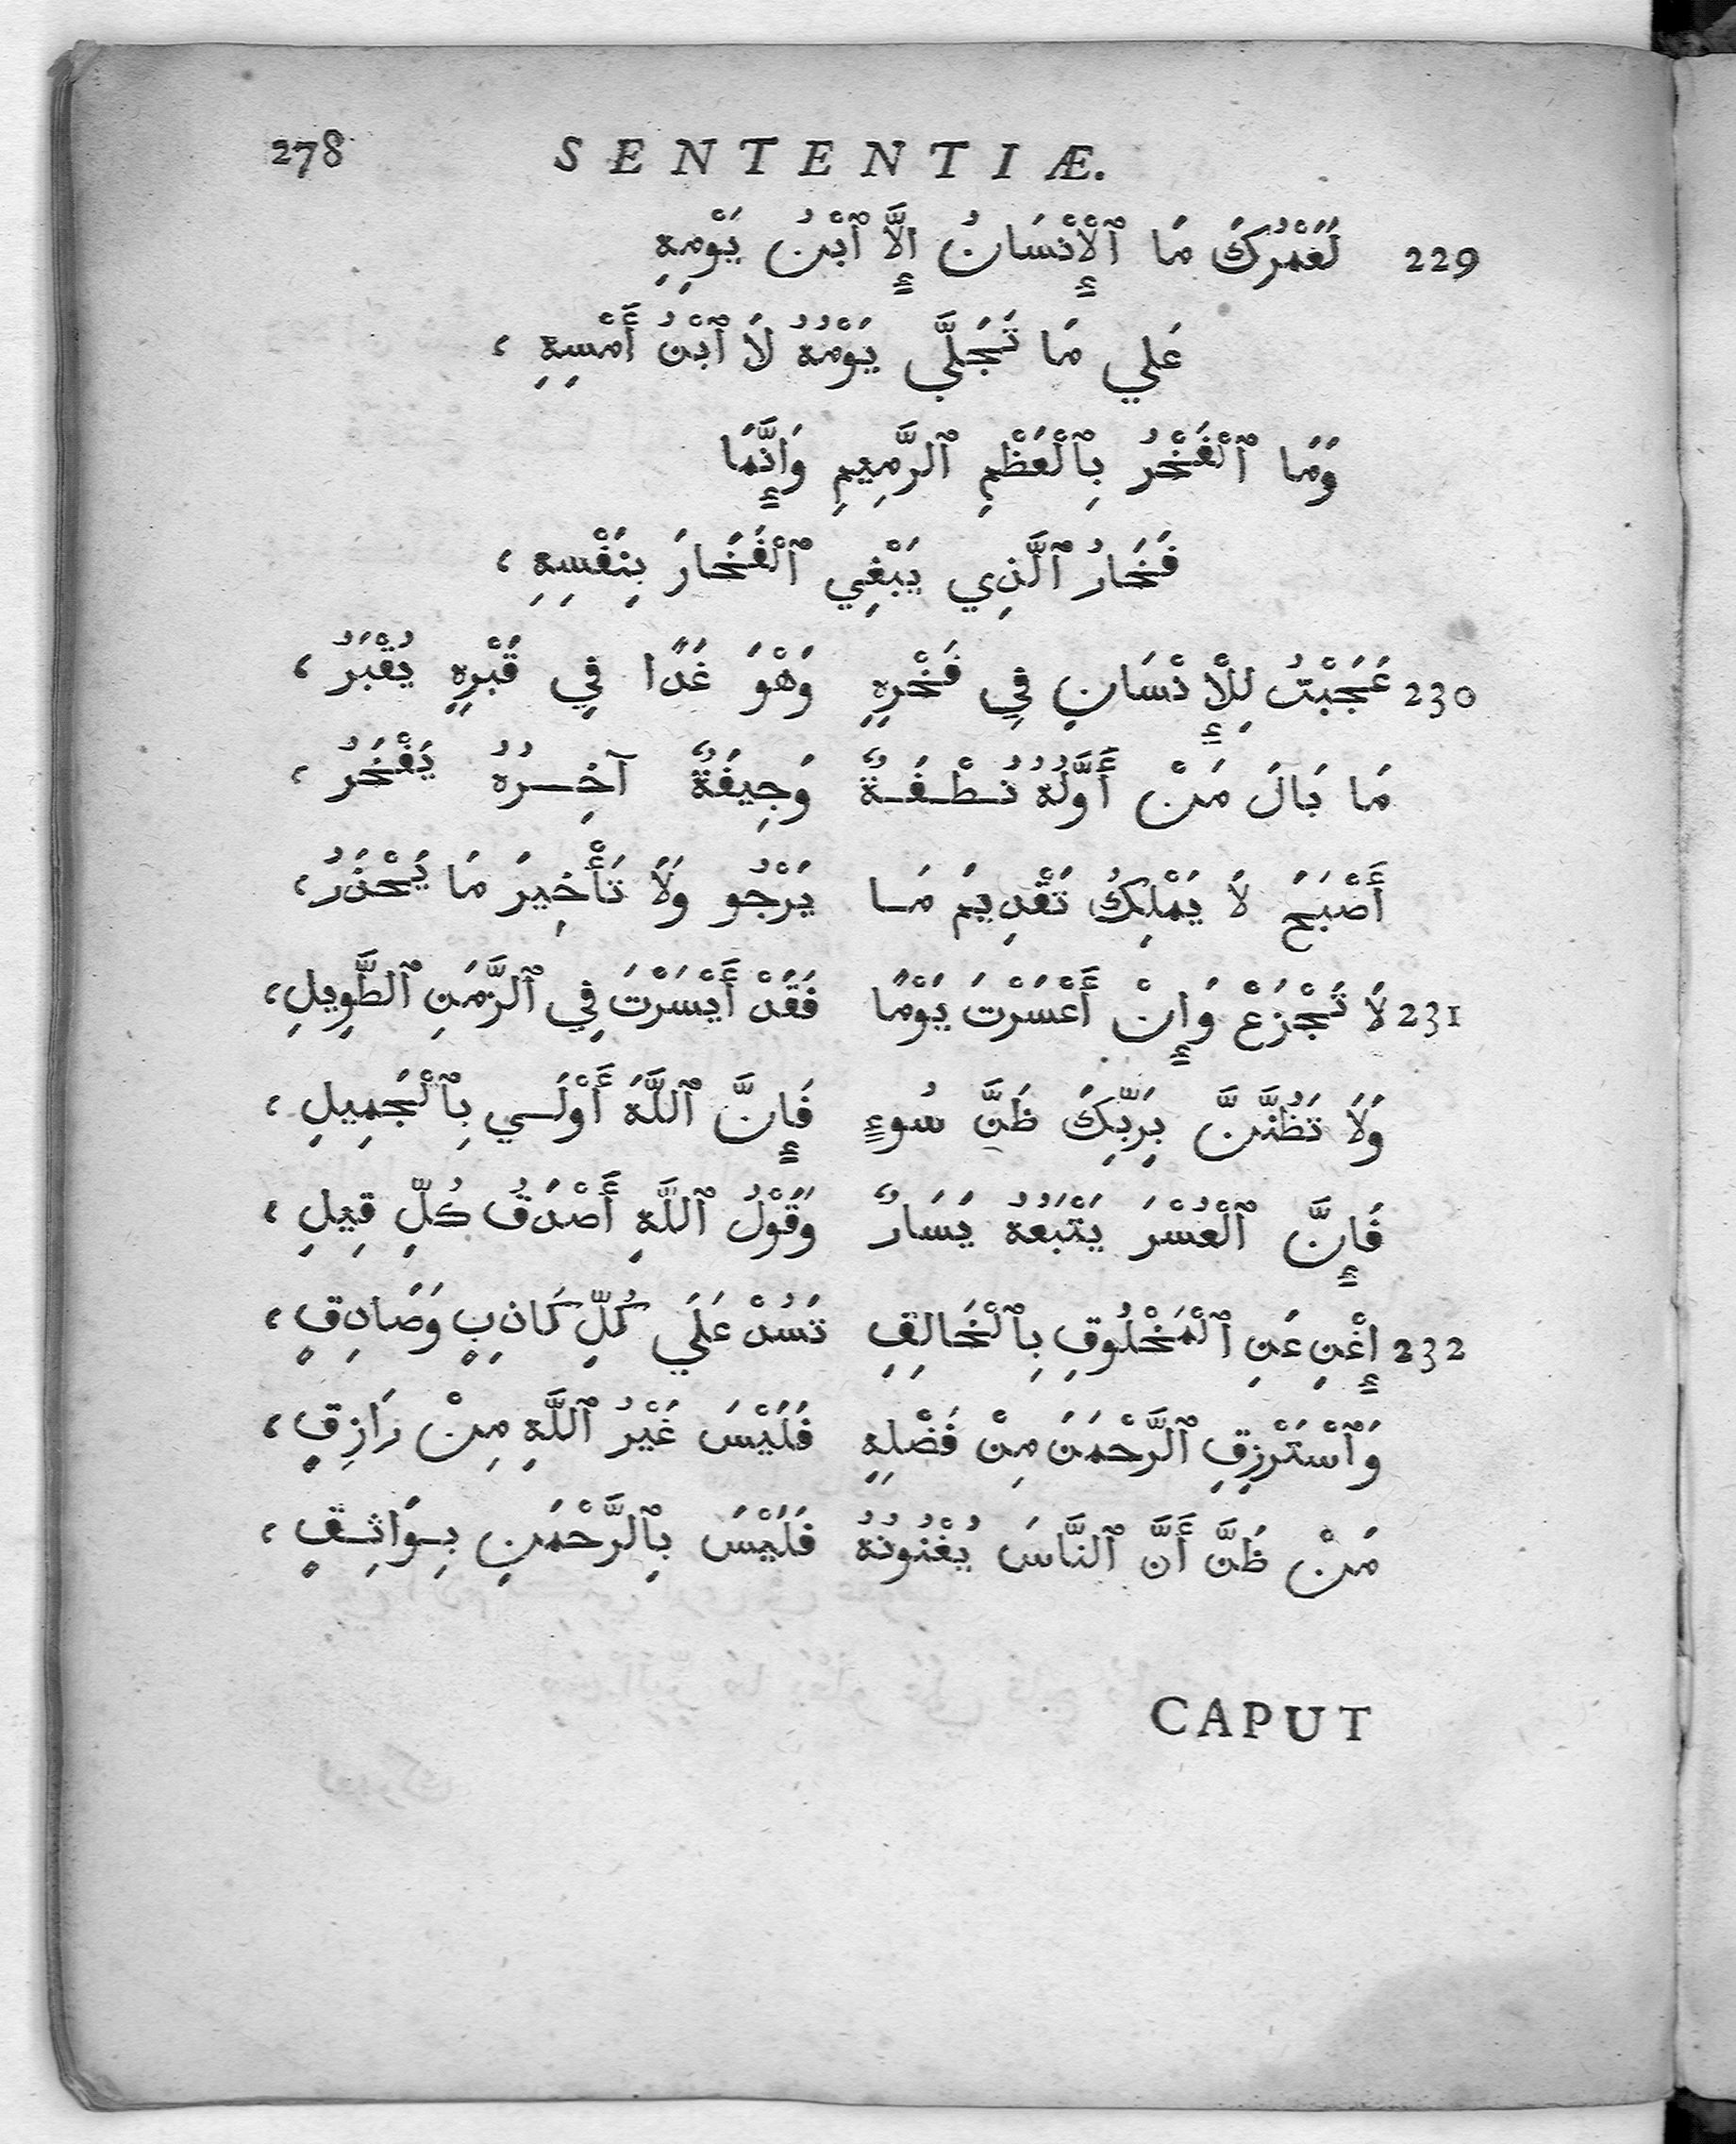 278 SENTENTIÆ.
229 لَعَمْرُكَ مَا ٱلْإِنْسَانُ إِلَّا ٱبْنُ يَوْمِهِ
عَلي مَا تَجَلَّى يَوْمُهُ لَا ٱبْنُ أَمْسِهِ ،
وَمَا ٱلْفَخْرُ بِٱلْعَظْمِ ٱلرَّمِيمِ وَإِنَّمَا
فَخَارُ ٱلَّذِي يَبْغِي ٱلْفَخَارَ بِنَفْسِهِ ،
230 عَجَبْتُ لِلْإِنْسَانِ فِي فَخْرِهِ وَهْوَ غَدًا فِي قَبْرِهِ يُقْبَرُ ،
مَا بَالَ مَنْ أَوَّلُهُ نُطْفَةٌ وَجِيفَةٌ آخِرُهُ يَفْخَرُ ،
أَصْبَحَ لَا يَمْلِكُ تَقْدِيمَ مَا يَرْجُو وَلَا تَأْخِيرَ مَا يَحْذَرُ ،
231 لَا تَجْزَعْ وَإِنْ أَعْسَرْتَ يَوْمًا فَقَدْ أَيْسَرْتَ فِي ٱلزَّمَنِ ٱلطَّوِيلِ ،
وَلَا تَظُنَّنَّ بِرَبِّكَ ظَنَّ سُوءٍ فَإِنَّ ٱللَّهَ أَوْلَي بِٱلْجَمِيلِ ،
فَإِنَّ ٱلْعُسْرَ يَتْبَعُهُ يَسَارٌ وَقَوْلُ ٱللَّهِ أَصْدَقُ كُلِّ قِيلِ ،
232 إِغْنِ عَنِ ٱلْمَخْلُوقِ بِٱلْخَالِقِ تَسُدْ عَلَي كُلِّ كَاذِبٍ وَصَادِقٍ ،
وَٱسْتَرْزِقِ ٱلرَّحْمَنَ مِنْ فَضْلِهِ فَلَيْسَ غَيْرُ ٱللَّهِ مِنْ رَازِقٍ ،
مَنْ ظَنَّ أَنَّ ٱلنَّاسَ يُغْنُونَهُ فَلَيْسَ بِٱلرَّحْمَنِ بِوَاثِقٍ ،
CAPUT